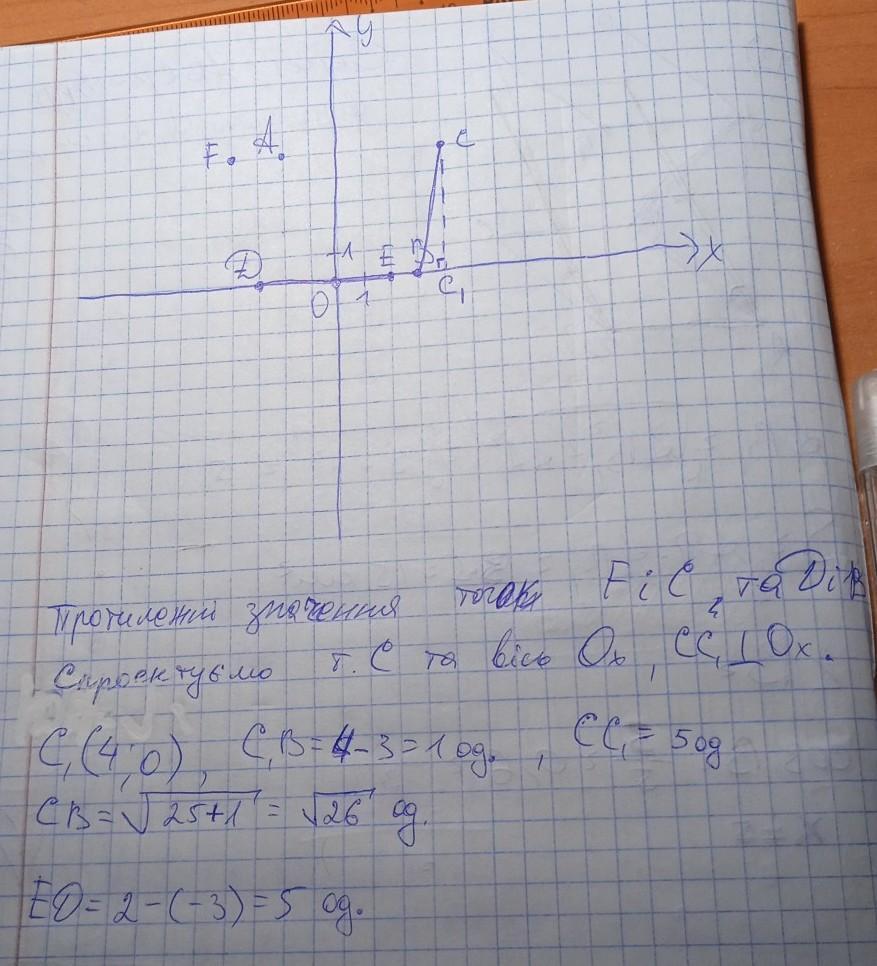 y
F. A.
C
1
D E B x
O 1 C₁
Протилежні значення точок F і C, та D і B
Спроектуємо т. C та вісь Ox, CC₁⊥Ox.
C₁(4;0), C₁B=4-3=1 од., CC₁=5од
CB=√25+1=√26 од.
ED=2-(-3)=5 од.